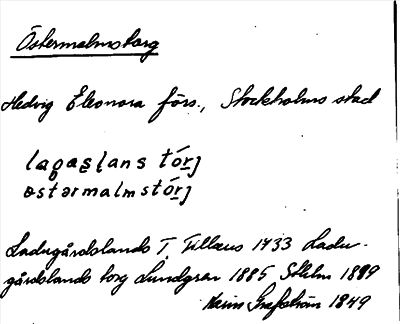 Östermalmstorg
Hedvig Eleonora förs., Stockholms stad
laga̱s̱ḻans tór̲j
östərmalmstór̲j
Ladugårdslands T. Tillæus 1733 Ladu-
gårdslands torg Lundgren 1885 Sthlm 1899
Karin Grafström 1849